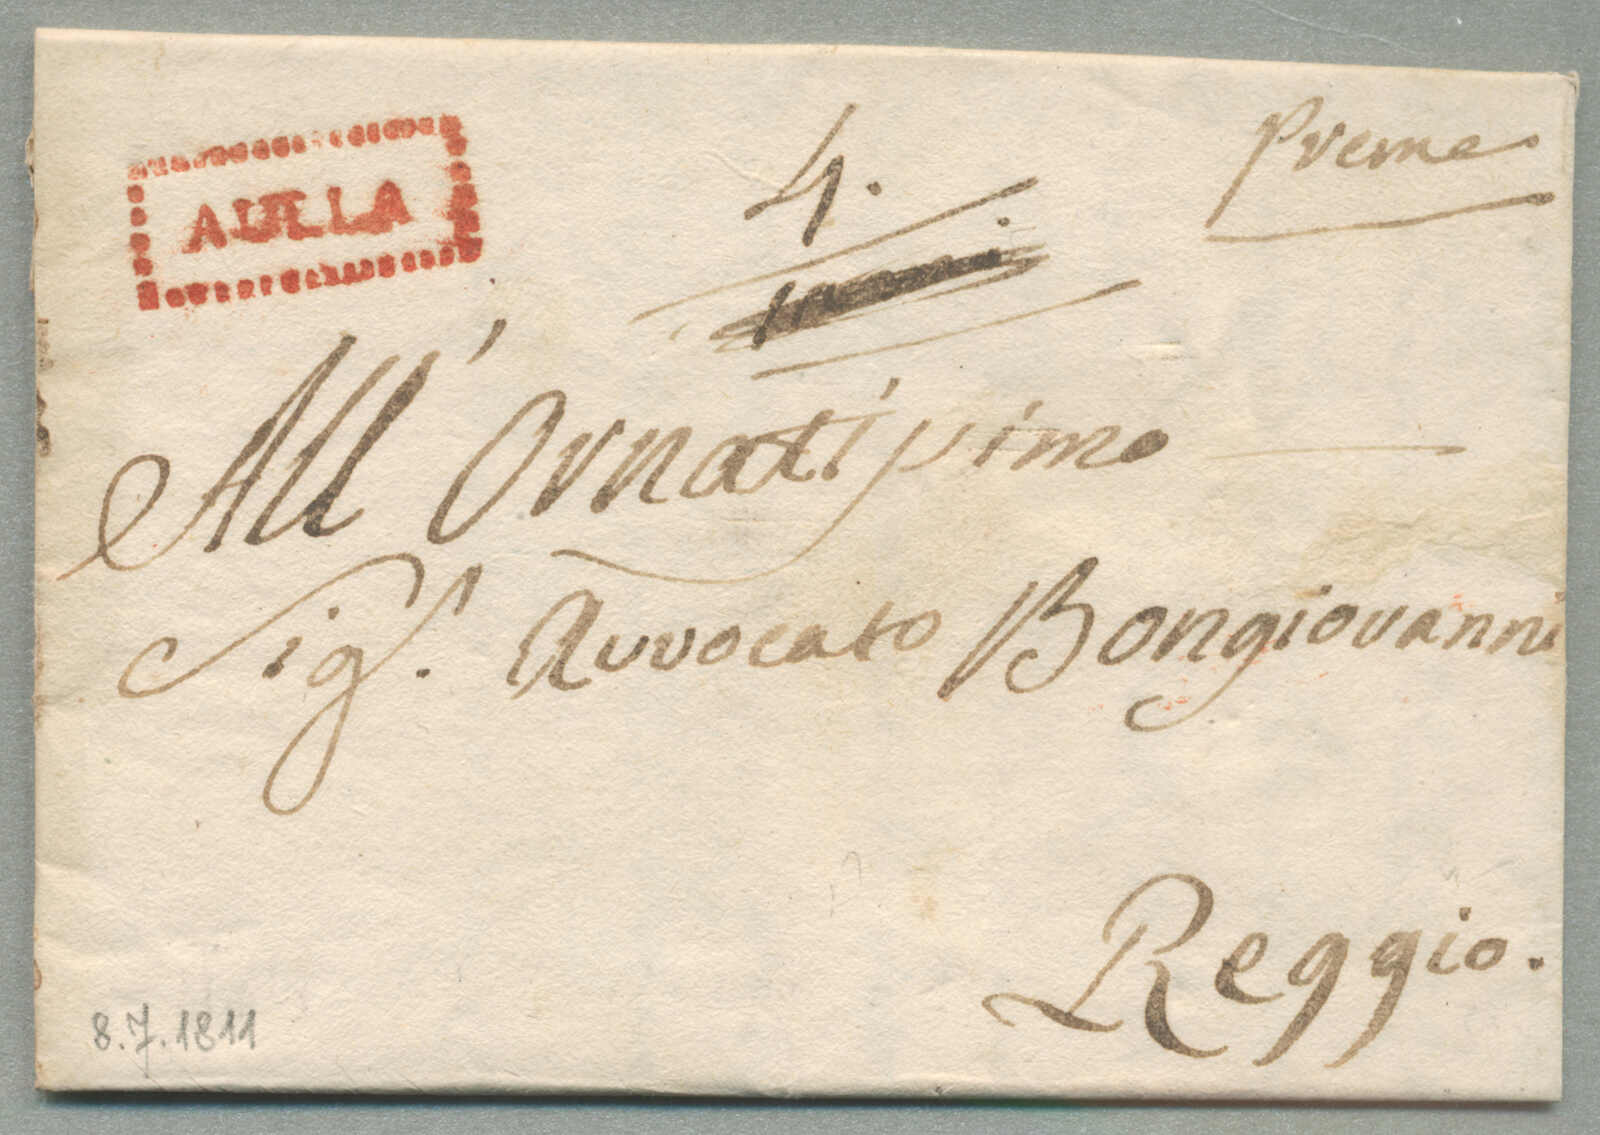 AULLA
4.
Preme
All' Ornatissimo
Sig.r Avvocato Bongiovanni
Reggio.
8.7.1811